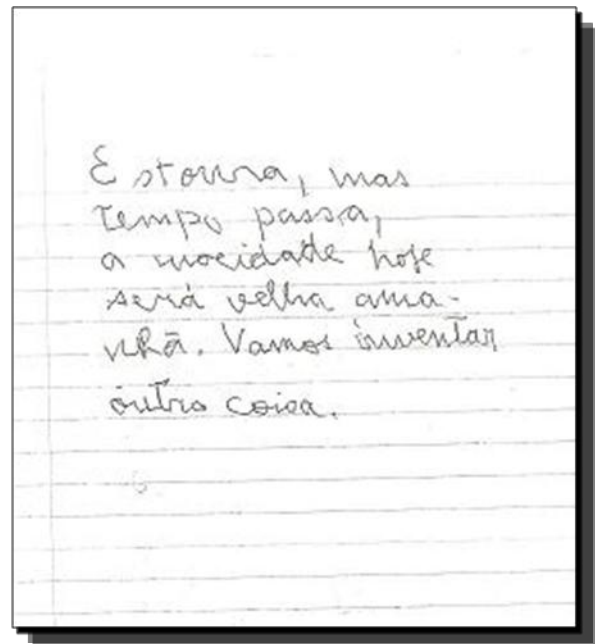 Estoura, mas
tempo passa,
a mocidade hoje
será velha ama-
nhã. Vamos inventar
outra coisa.